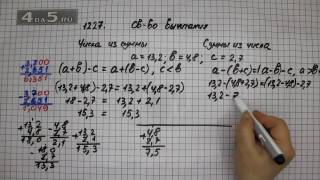 4DA5.RU
1227. Св-во вычитания
Числа из суммы
Суммы из числа
a = 13,2; b = 4,8; c = 2,7
(a+b)-c = a+(b-c), c<b
a-(b+c)=(a-b)-c, a>
(13,2+4,8)-2,7 = 13,2+(4,8-2,7)
13,2-(4,8+2,7)=(13,2-4,8)-2,7
18-2,7 = 13,2+2,1
13,2-7
15,3 = 15,3
3,700
3,700
1,049
13,2
4,8
18,0
2,7
15,3
13,2
2,1
15,3
4,8
2,7
7,5